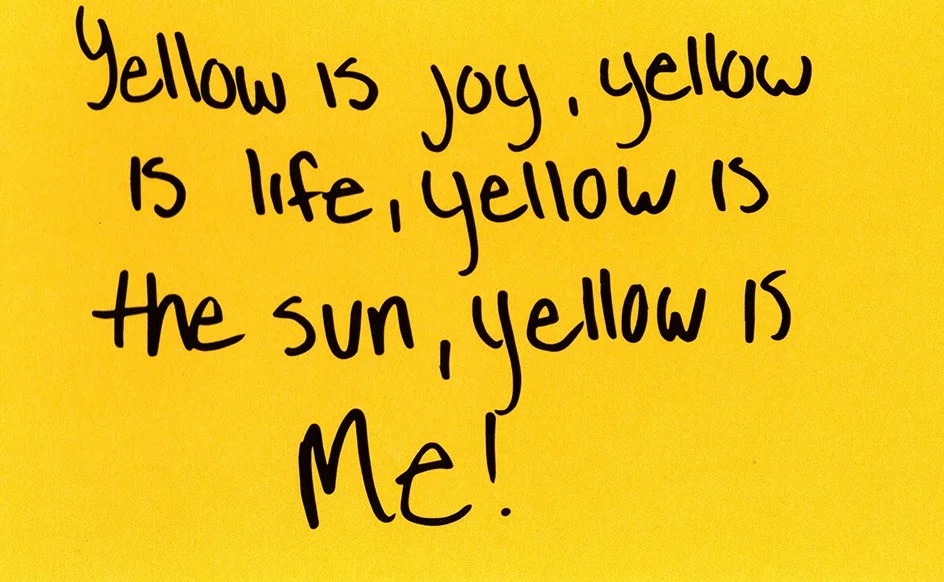 Yellow is joy, yellow
is life, yellow is
the sun, yellow is
Me!